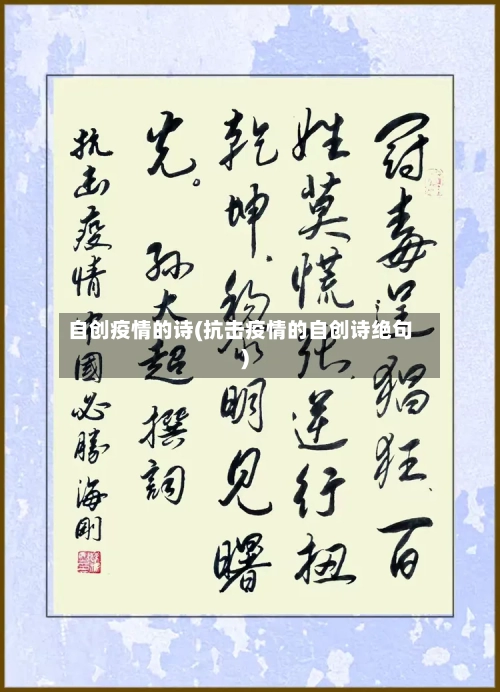 冠毒逞猖狂.百
姓莫慌张.逆行扭
乾坤.明见曙
光。孙大超撰詞
抗击疫情中國必勝海剛
自创疫情的诗(抗击疫情的自创诗绝句
)